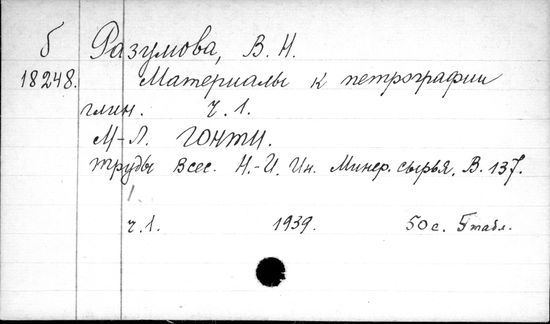 б Разумова, В. Н.
18248. Материалы к петрографии
глин. ч. 1.
М-Л. ГОНТИ.
Труды Всес. Н.-И. Ин. Минер. сырья. В. 137.
1.
ч. 1. 1939. 50 с. 5 табл.